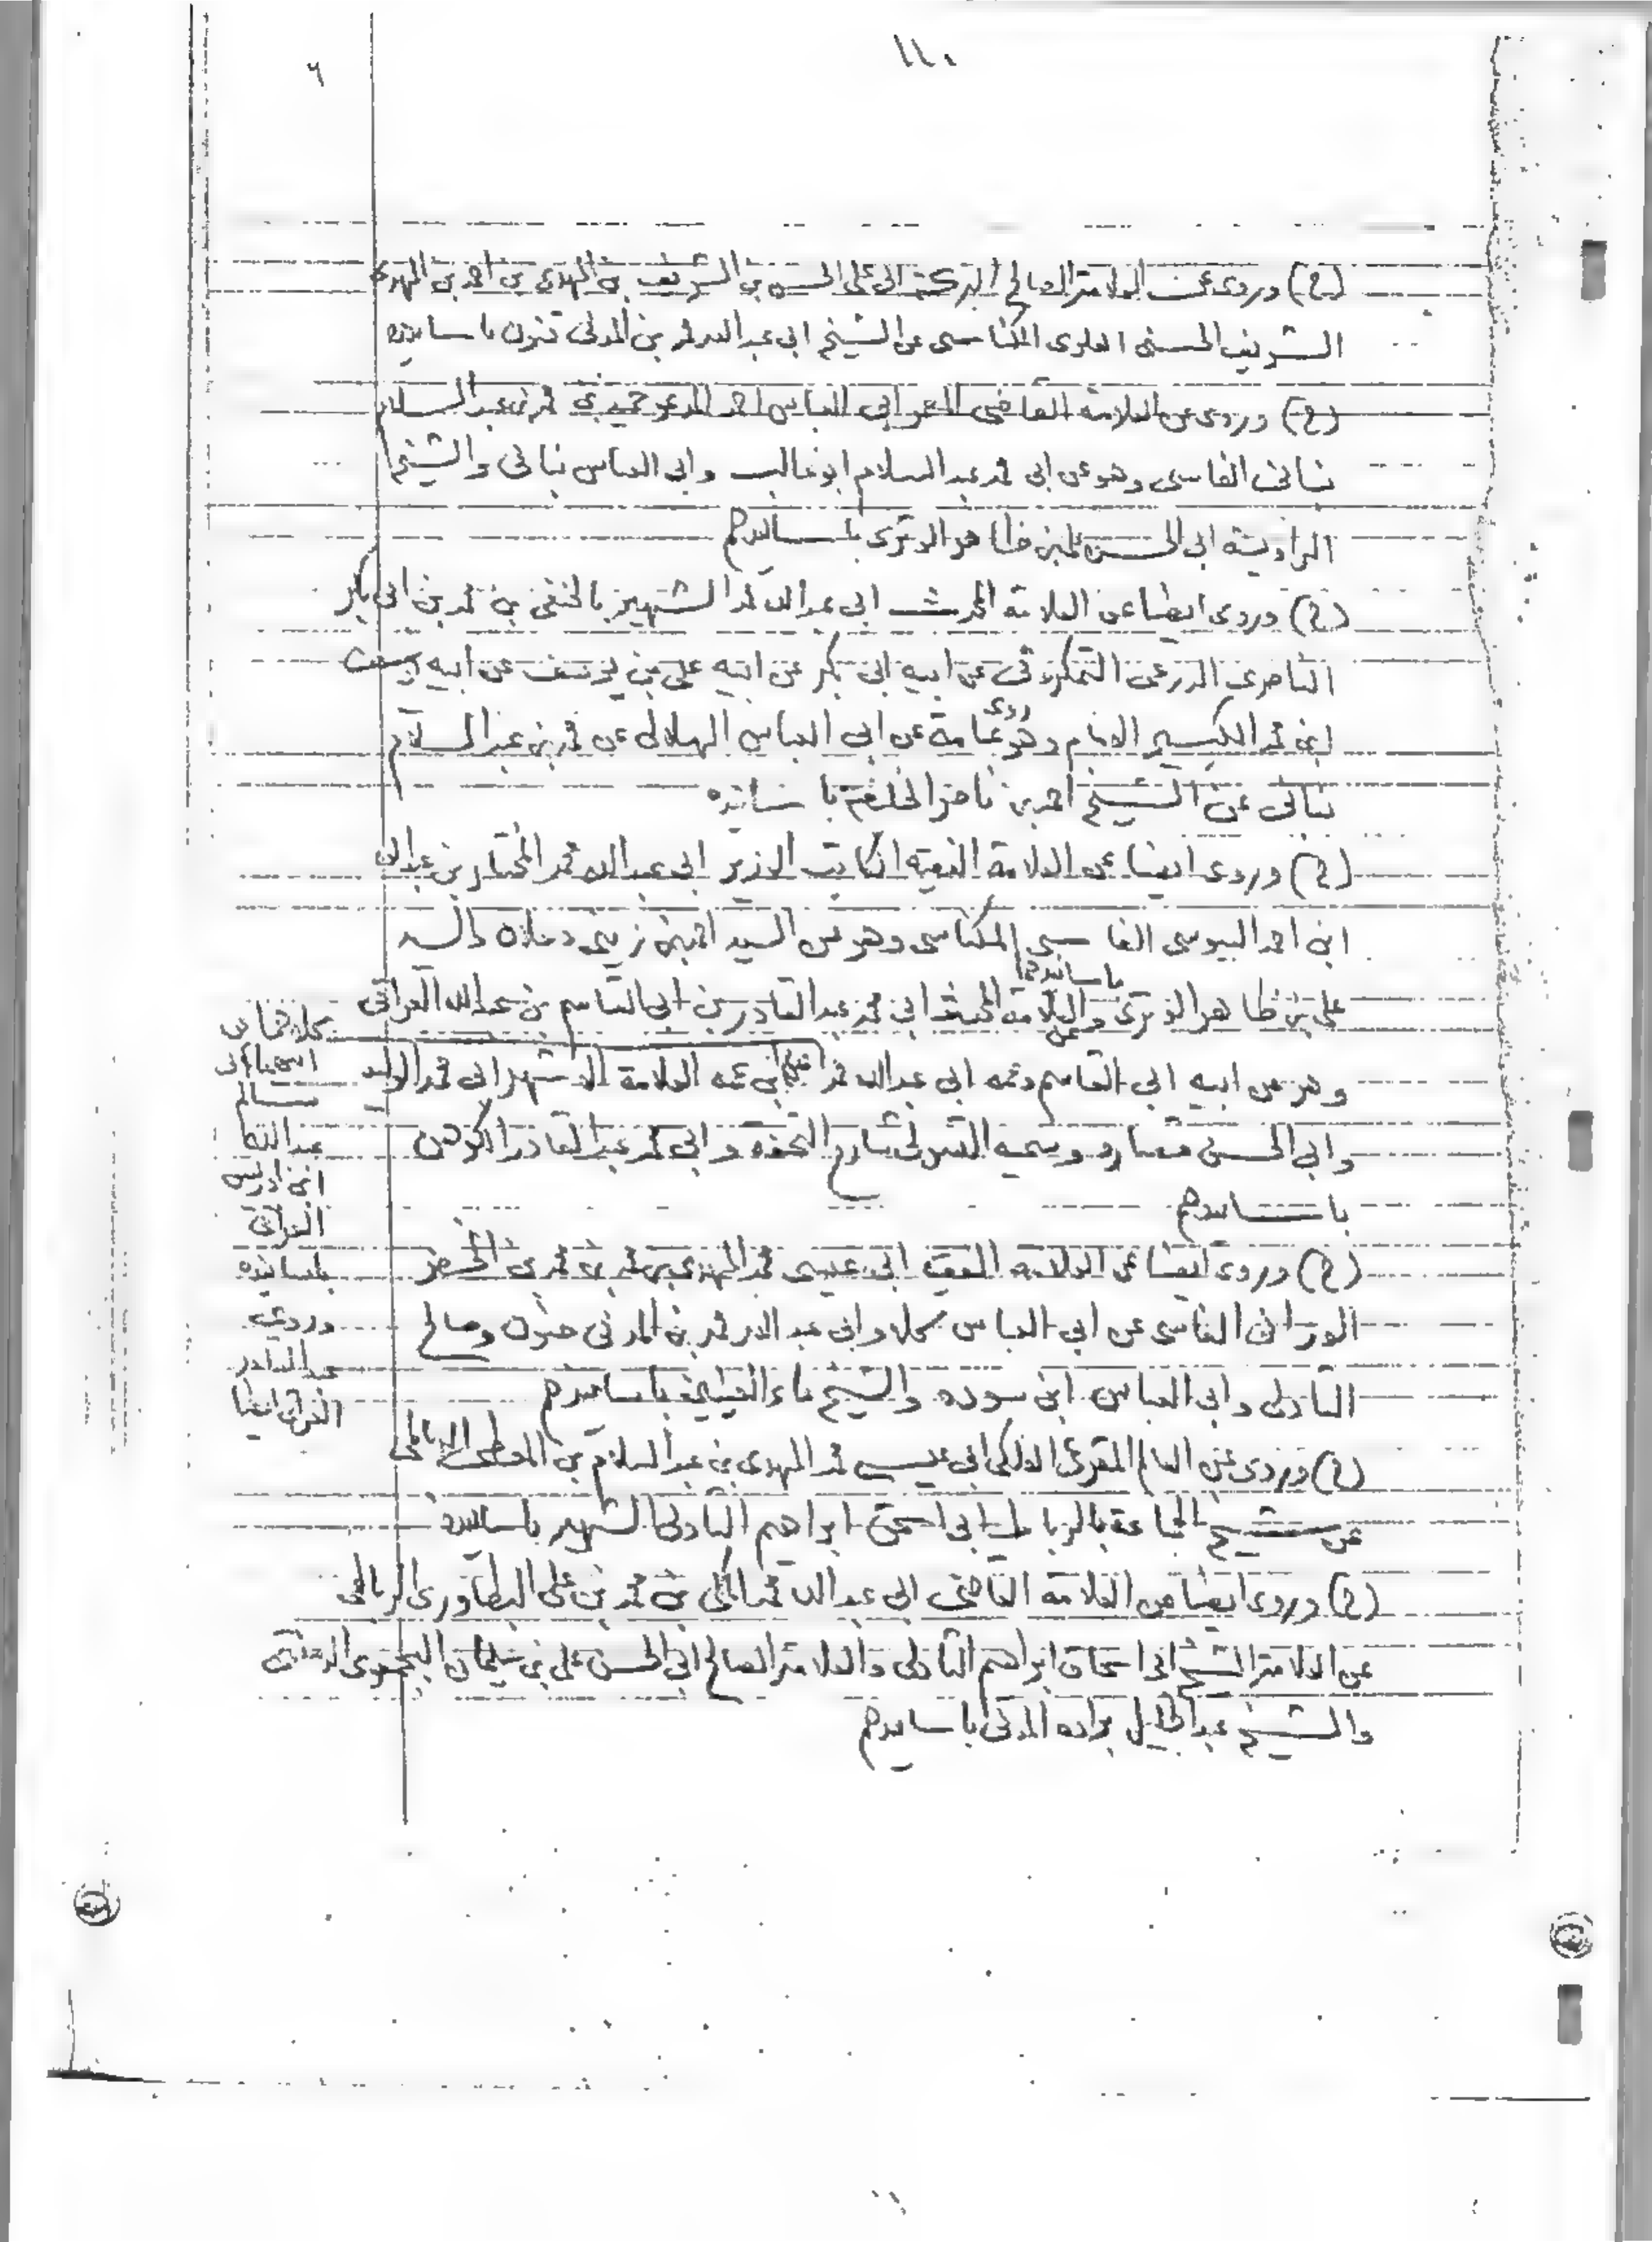 ١١٠
٦
(ح) وروى عن العلامة الصالح البركة ابي علي الحسن بن الشريف بن المهدي بن احمد بن المهدي
الشريف الحسني العلوي المكناسي عن الشيخ ابي عبد الله محمد بن المدني كنون باسانيده
(ح) وروى عن العلامة القاضي ابي العباس احمد المدعو حميد بن محمد بن عبد السلام
بناني الفاسي وهو عن ابي محمد عبد السلام ابو غالب وابي العباس بناني والشيخ
ابي الحسن علي بن ظاهر الوتري باسانيدهم
(ح) وروى ايضا عن العلامة المحدث ابي عبد الله محمد الشهير بالحنفي بن محمد بن ابي بكر
الناصري الدرعي التمكروتي عن ابيه ابي بكر عن ابيه علي بن يوسف عن ابيه يوسف
ابن محمد الكبير وهو روى عامة عن ابي العباس الهلالي عن محمد بن عبد السلام
بناني عن الشيخ احمد بن ناصر الخليفة باسانيده
(ح) وروى ايضا عن العلامة الفقيه الكاتب الوزير ابي عبد الله محمد المختار بن عبد الله
ابن احمد الفاسي المكناسي وهو عن السيد احمد بن زيني دحلان والسيد
علي بن ظاهر الوتري باسانيدهما وعن العلامة المحدث ابي محمد عبد القادر بن ابي القاسم بن عبد الله العراقي
وهو عن ابيه ابي القاسم وعمه ابي عبد الله محمد وابن عمه العلامة الشهير ابي محمد الوليد
وابي الحسن وسميه التسولي شارح التحفة وابي محمد عبد القادر الكوهن
باسانيدهم
كلاهما عن
سالم
عبد الله
ابن ادريس
العراقي
باسانيده
وروى
عبد القادر
العراقي ايضا
(ح) وروى ايضا عن العلامة الفقيه ابي عيسى محمد المهدي بن محمد بن محمد بن الخضر
الوزاني الفاسي عن ابي العباس كلا وابي عبد الله محمد بن المدني جنون وصالح
التادلي وابي العباس ابن سوده والشيخ ماء العينين باسانيدهم
(ح) وروى عن العالم المقرئ الفلكي ابي عيسى محمد المهدي بن عبد السلام بن المعطي
عن شيخ الجماعة بالرباط ابي اسحق ابراهيم التادلي الشهير باسانيده
(ح) وروى ايضا عن العلامة القاضي ابي عبد الله محمد المكي بن محمد بن علي البطاوري الرباطي
عن العلامة الشيخ ابي اسحاق ابراهيم التادلي والعلامة الصالح ابي الحسن علي بن سليمان البجمعوي الدمنتي
والشيخ عبد الجليل براده المدني باسانيدهم